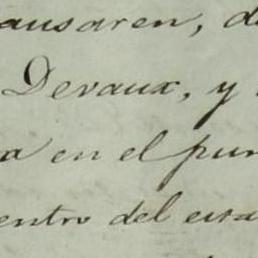 ausaren, d
Devaux, y
a en el pun
entro del esta